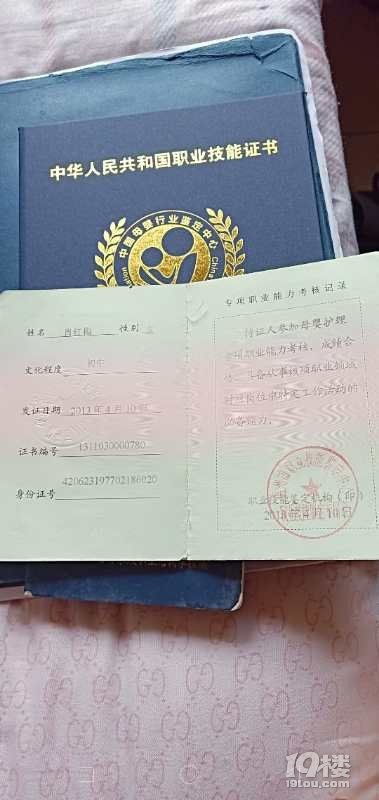 中华人民共和国职业技能证书
中国母婴行业鉴定中心
China
专项职业能力考核记录
姓名 肖红梅 性别 女
文化程度 初中
发证日期 2013年4月10日
证书编号 1311030000780
身份证号 420623197702186020
持证人参加母婴护理
专项职业能力考核，成绩合
格，具备从事该项职业领域
对应岗位中特定工作活动的
职业技能鉴定机构（印）
4月10日
19楼
19lou.com